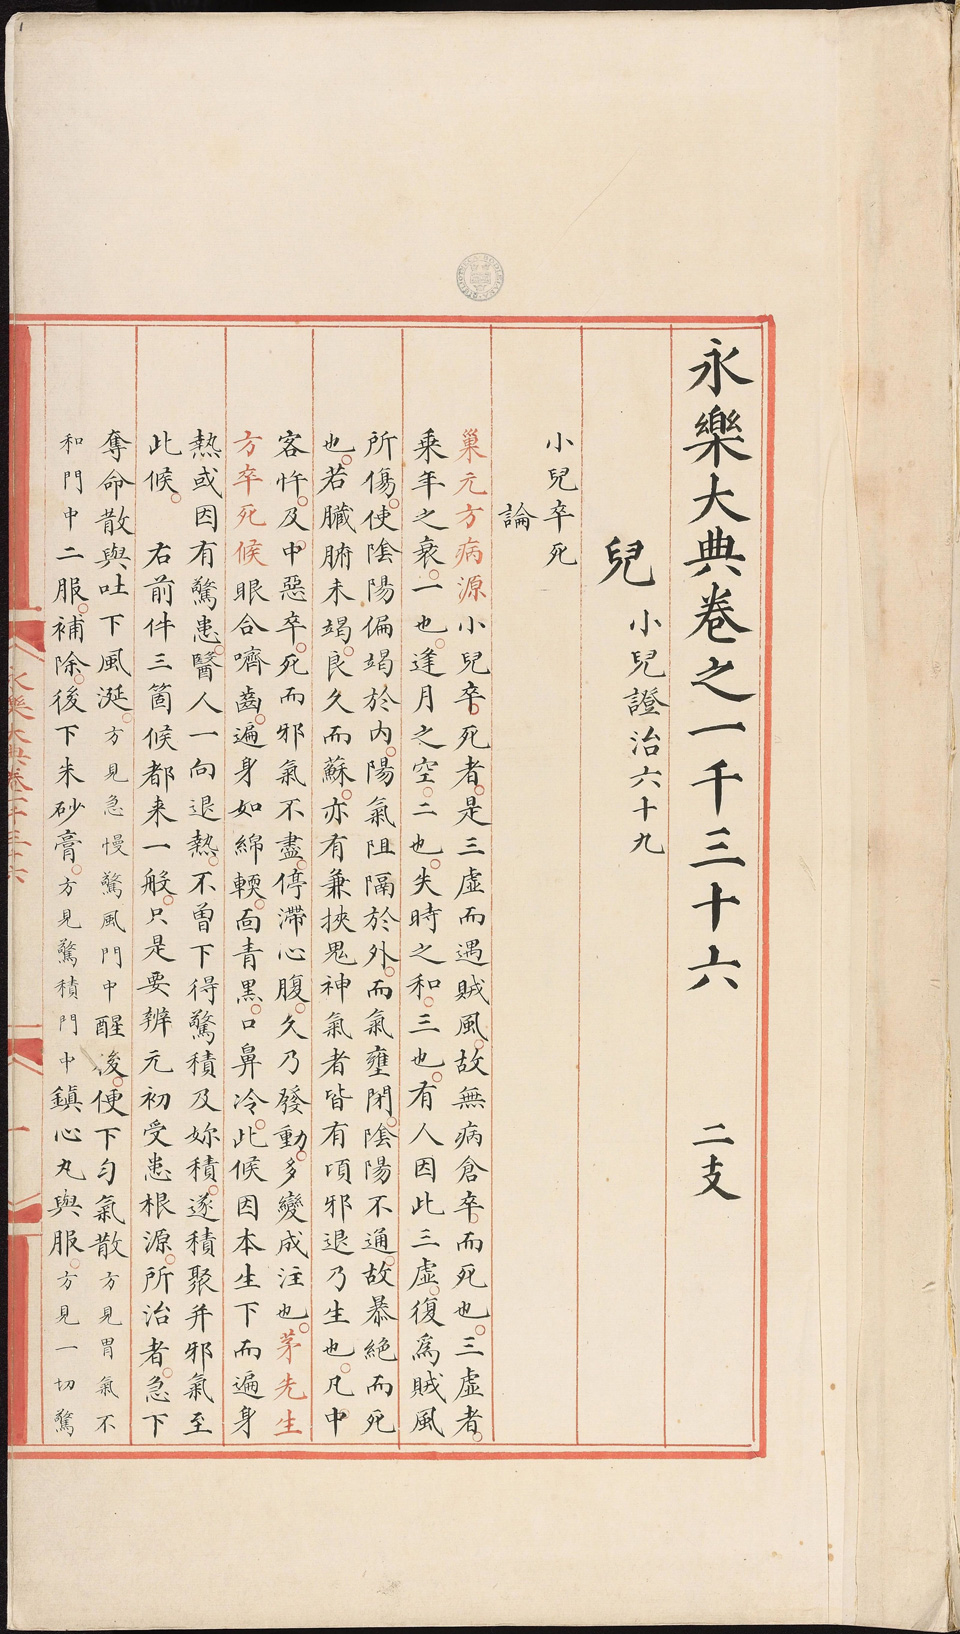 永樂大典卷之一千三十六 二支
兒 小兒證治六十九
小兒卒死
論
巢元方病源小兒卒死者是三虛而遇賊風故無病倉卒而死也三虛者
乘年之衰一也逢月之空二也失時之和三也有人因此三虛復爲賊風
所傷使陰陽偏竭於内陽氣阻隔於外而氣壅閉陰陽不通故暴絶而死
也若臟腑未竭良久而蘇亦有兼挾鬼神氣者皆有頃邪退乃生也凡中
客忤及中惡卒死而邪氣不盡停滯心腹久乃發動多變成注也茅先生
方卒死候眼合嚌齒遍身如綿輭靣青黑口鼻冷此候因本生下而遍身
熱或因有驚患醫人一向退熱不曾下得驚積及妳積遂積聚并邪氣至
此候 右前件三箇候都来一般只是要辨元初受患根源所治者急下
奪命散與吐下風涎方見急慢驚風門中醒後便下匀氣散方見胃氣不
和門中二服補除後下朱砂膏方見驚積門中鎮心丸與服方見一切驚